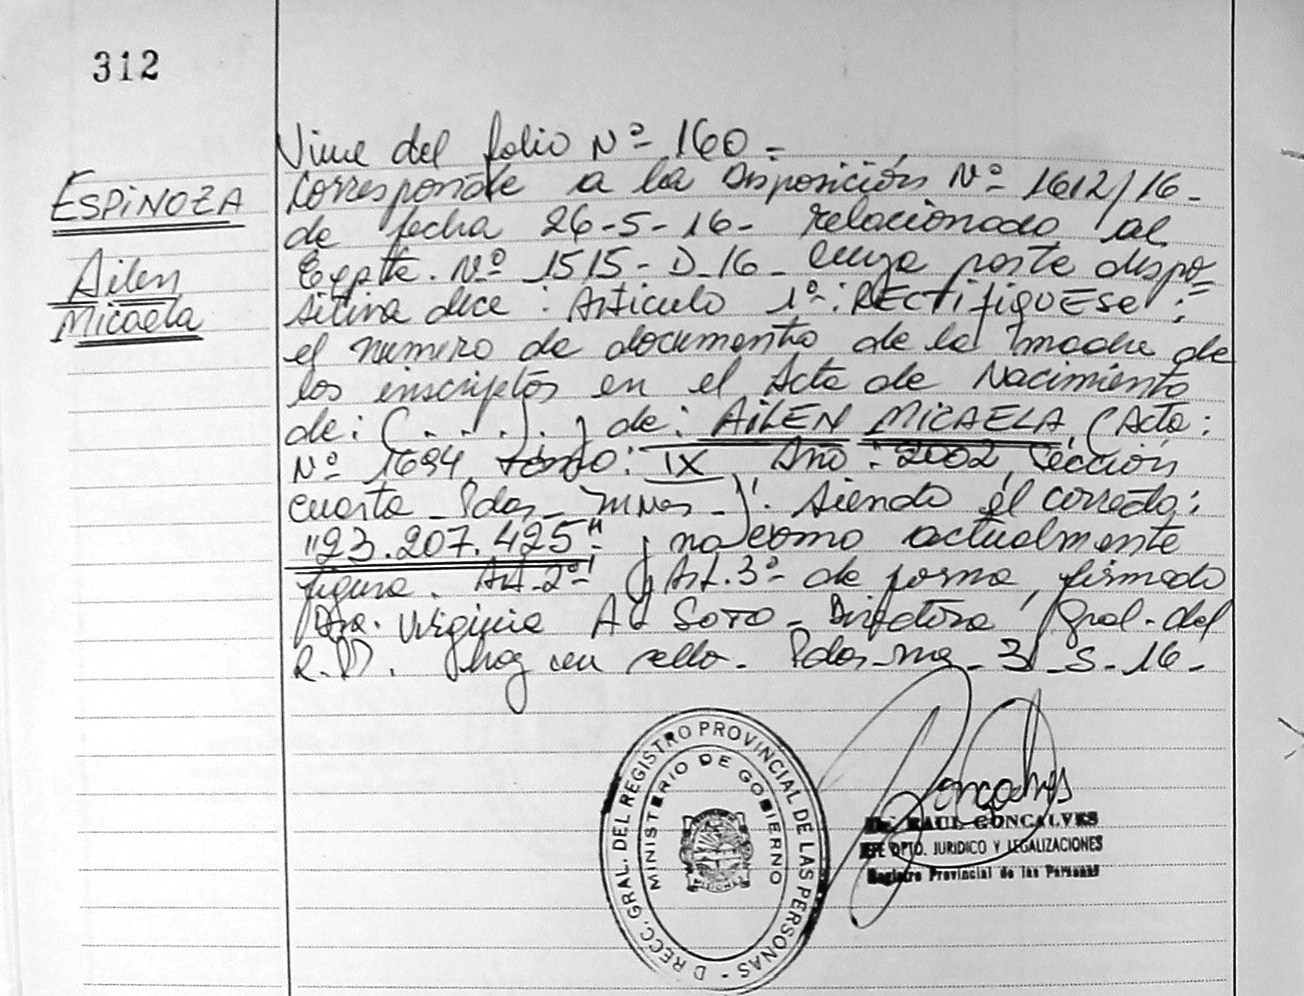 312
ESPINOZA
Ailen
Micaela
Viene del folio Nº 160.-
Corresponde a la Disposición Nº 1612/16-
de fecha 26-5-16- relacionado al
Expte. Nº 1515-D-16- cuya parte dispo=
sitiva dice: Articulo 1º: RECTifiqUEse:
el numero de documento de la madre de
los inscriptos en el Acta de Nacimiento
de: (. . . .) . y de: AiLEN MiCAELA (Acta:
Nº 1694 tomo: IX Año: 2002 Sección
cuarta - Pdas - Mnes -). Siendo el correcto:
"23.207.425" y no como actualmente
figura. Art. 2º y Art. 3º de forma, firmado
Dra. Virginia Soto - Directora Gral. del
R.P. hay un sello. Pdas - Mnes - 31-5-16-
DIRECC. GRAL. DEL REGISTRO PROVINCIAL DE LAS PERSONAS -
MINISTERIO DE GOBIERNO
MISIONES
Goncalves
Dr. RAUL GONCALVES
JEFE DPTO. JURIDICO Y LEGALIZACIONES
Registro Provincial de las Personas